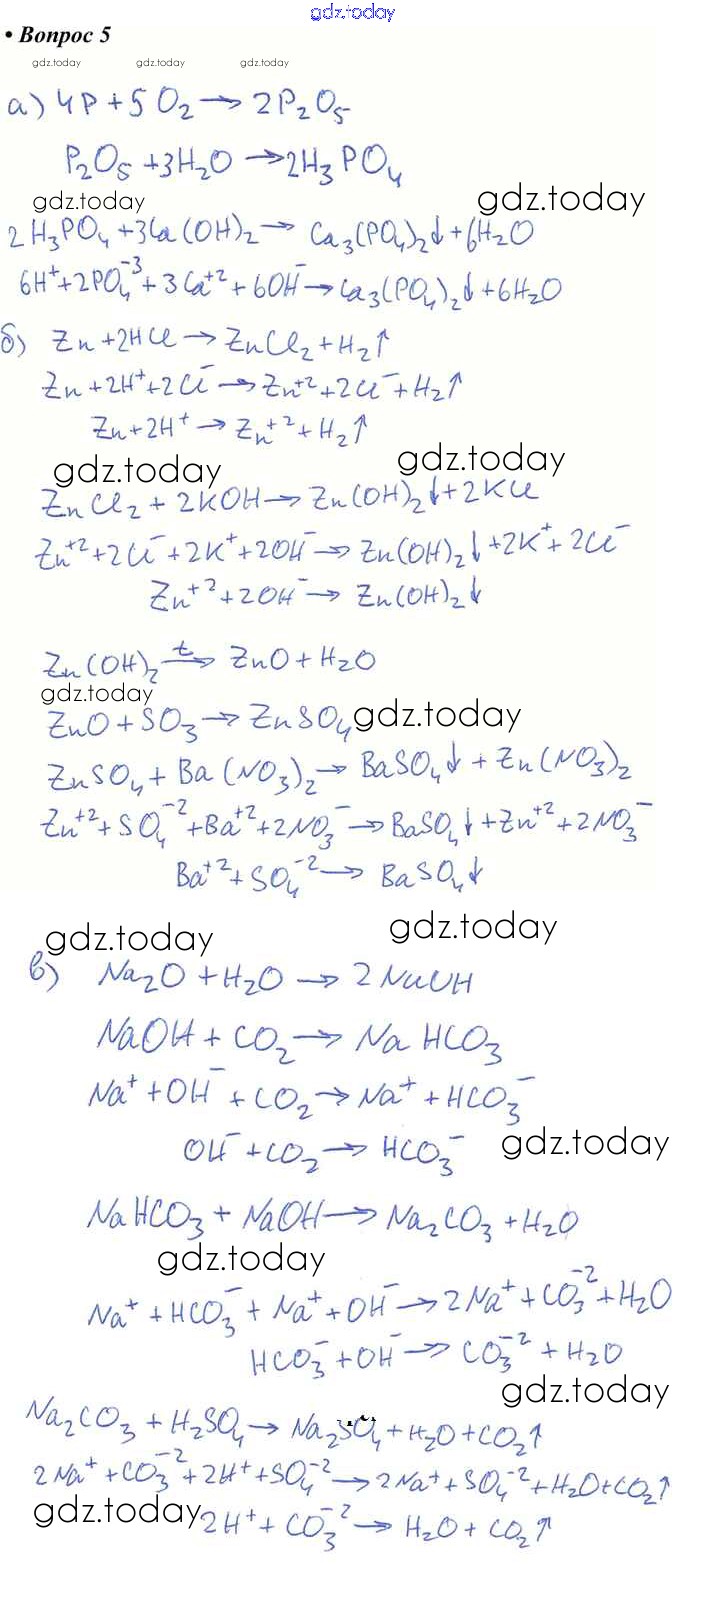 gdz.today
• Вопрос 5
gdz.today gdz.today gdz.today
а) 4P + 5O₂ → 2P₂O₅
P₂O₅ + 3H₂O → 2H₃PO₄
gdz.today gdz.today
2H₃PO₄ + 3Ca(OH)₂ → Ca₃(PO₄)₂↓ + 6H₂O
6H⁺ + 2PO₄⁻³ + 3Ca⁺² + 6OH⁻ → Ca₃(PO₄)₂↓ + 6H₂O
б) Zn + 2HCl → ZnCl₂ + H₂↑
Zn + 2H⁺ + 2Cl⁻ → Zn⁺² + 2Cl⁻ + H₂↑
Zn + 2H⁺ → Zn⁺² + H₂↑
gdz.today gdz.today
ZnCl₂ + 2KOH → Zn(OH)₂↓ + 2KCl
Zn⁺² + 2Cl⁻ + 2K⁺ + 2OH⁻ → Zn(OH)₂↓ + 2K⁺ + 2Cl⁻
Zn⁺² + 2OH⁻ → Zn(OH)₂↓
Zn(OH)₂ →ᵗ ZnO + H₂O
gdz.today
ZnO + SO₃ → ZnSO₄ gdz.today
ZnSO₄ + Ba(NO₃)₂ → BaSO₄↓ + Zn(NO₃)₂
Zn⁺² + SO₄⁻² + Ba⁺² + 2NO₃⁻ → BaSO₄↓ + Zn⁺² + 2NO₃⁻
Ba⁺² + SO₄⁻² → BaSO₄↓
gdz.today gdz.today
в) Na₂O + H₂O → 2NaOH
NaOH + CO₂ → NaHCO₃
Na⁺ + OH⁻ + CO₂ → Na⁺ + HCO₃⁻
OH⁻ + CO₂ → HCO₃⁻ gdz.today
NaHCO₃ + NaOH → Na₂CO₃ + H₂O
gdz.today
Na⁺ + HCO₃⁻ + Na⁺ + OH⁻ → 2Na⁺ + CO₃⁻² + H₂O
HCO₃⁻ + OH⁻ → CO₃⁻² + H₂O
gdz.today
Na₂CO₃ + H₂SO₄ → Na₂SO₄ + H₂O + CO₂↑
2Na⁺ + CO₃⁻² + 2H⁺ + SO₄⁻² → 2Na⁺ + SO₄⁻² + H₂O + CO₂↑
gdz.today 2H⁺ + CO₃⁻² → H₂O + CO₂↑